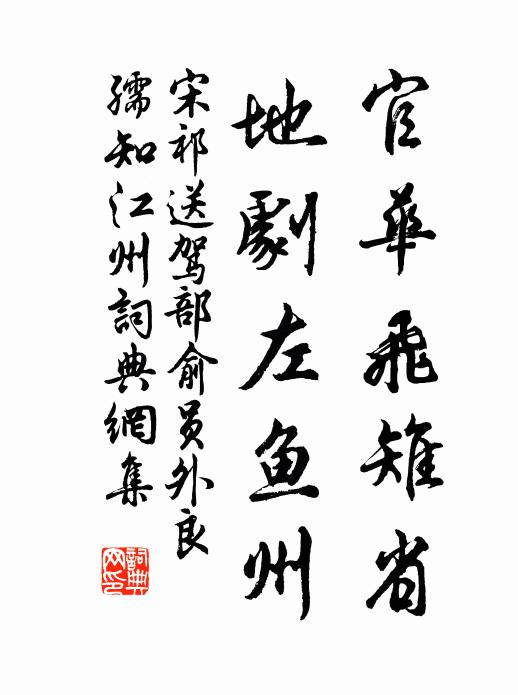 官華飛雉省
地劇左魚州
宋祁送駕部俞員外良
孺知江州詞典網集
詞典網印